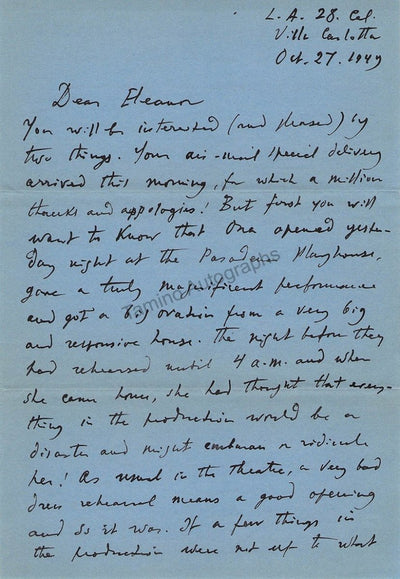 L. A. 28. Cal.
Villa Carlotta
Oct. 27. 1949
Dear Eleanor
You will be interested (and pleased) by
two things. Your air-mail special delivery
arrived this morning, for which a million
thanks and appologies! But first you will
want to know that Ona opened yester-
day night at the Pasadena Playhouse,
gave a truly magnificent performance
and got a big ovation from a very big
and responsive house. The night before they
had rehearsed until 4 a.m. and when
she came home, she had thought that every-
thing in the production would be a
disaster and might embarrass or ridicule
her! As usual in the theatre, a very bad
dress rehearsal means a good opening
and so it was. If a few things in
the production were not up to what
Tamino Autographs